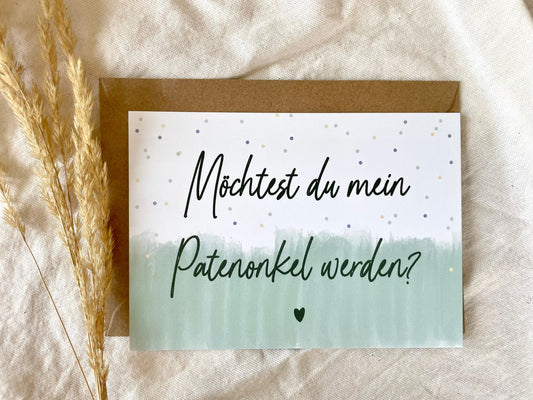 Möchtest du mein
Patenonkel werden?